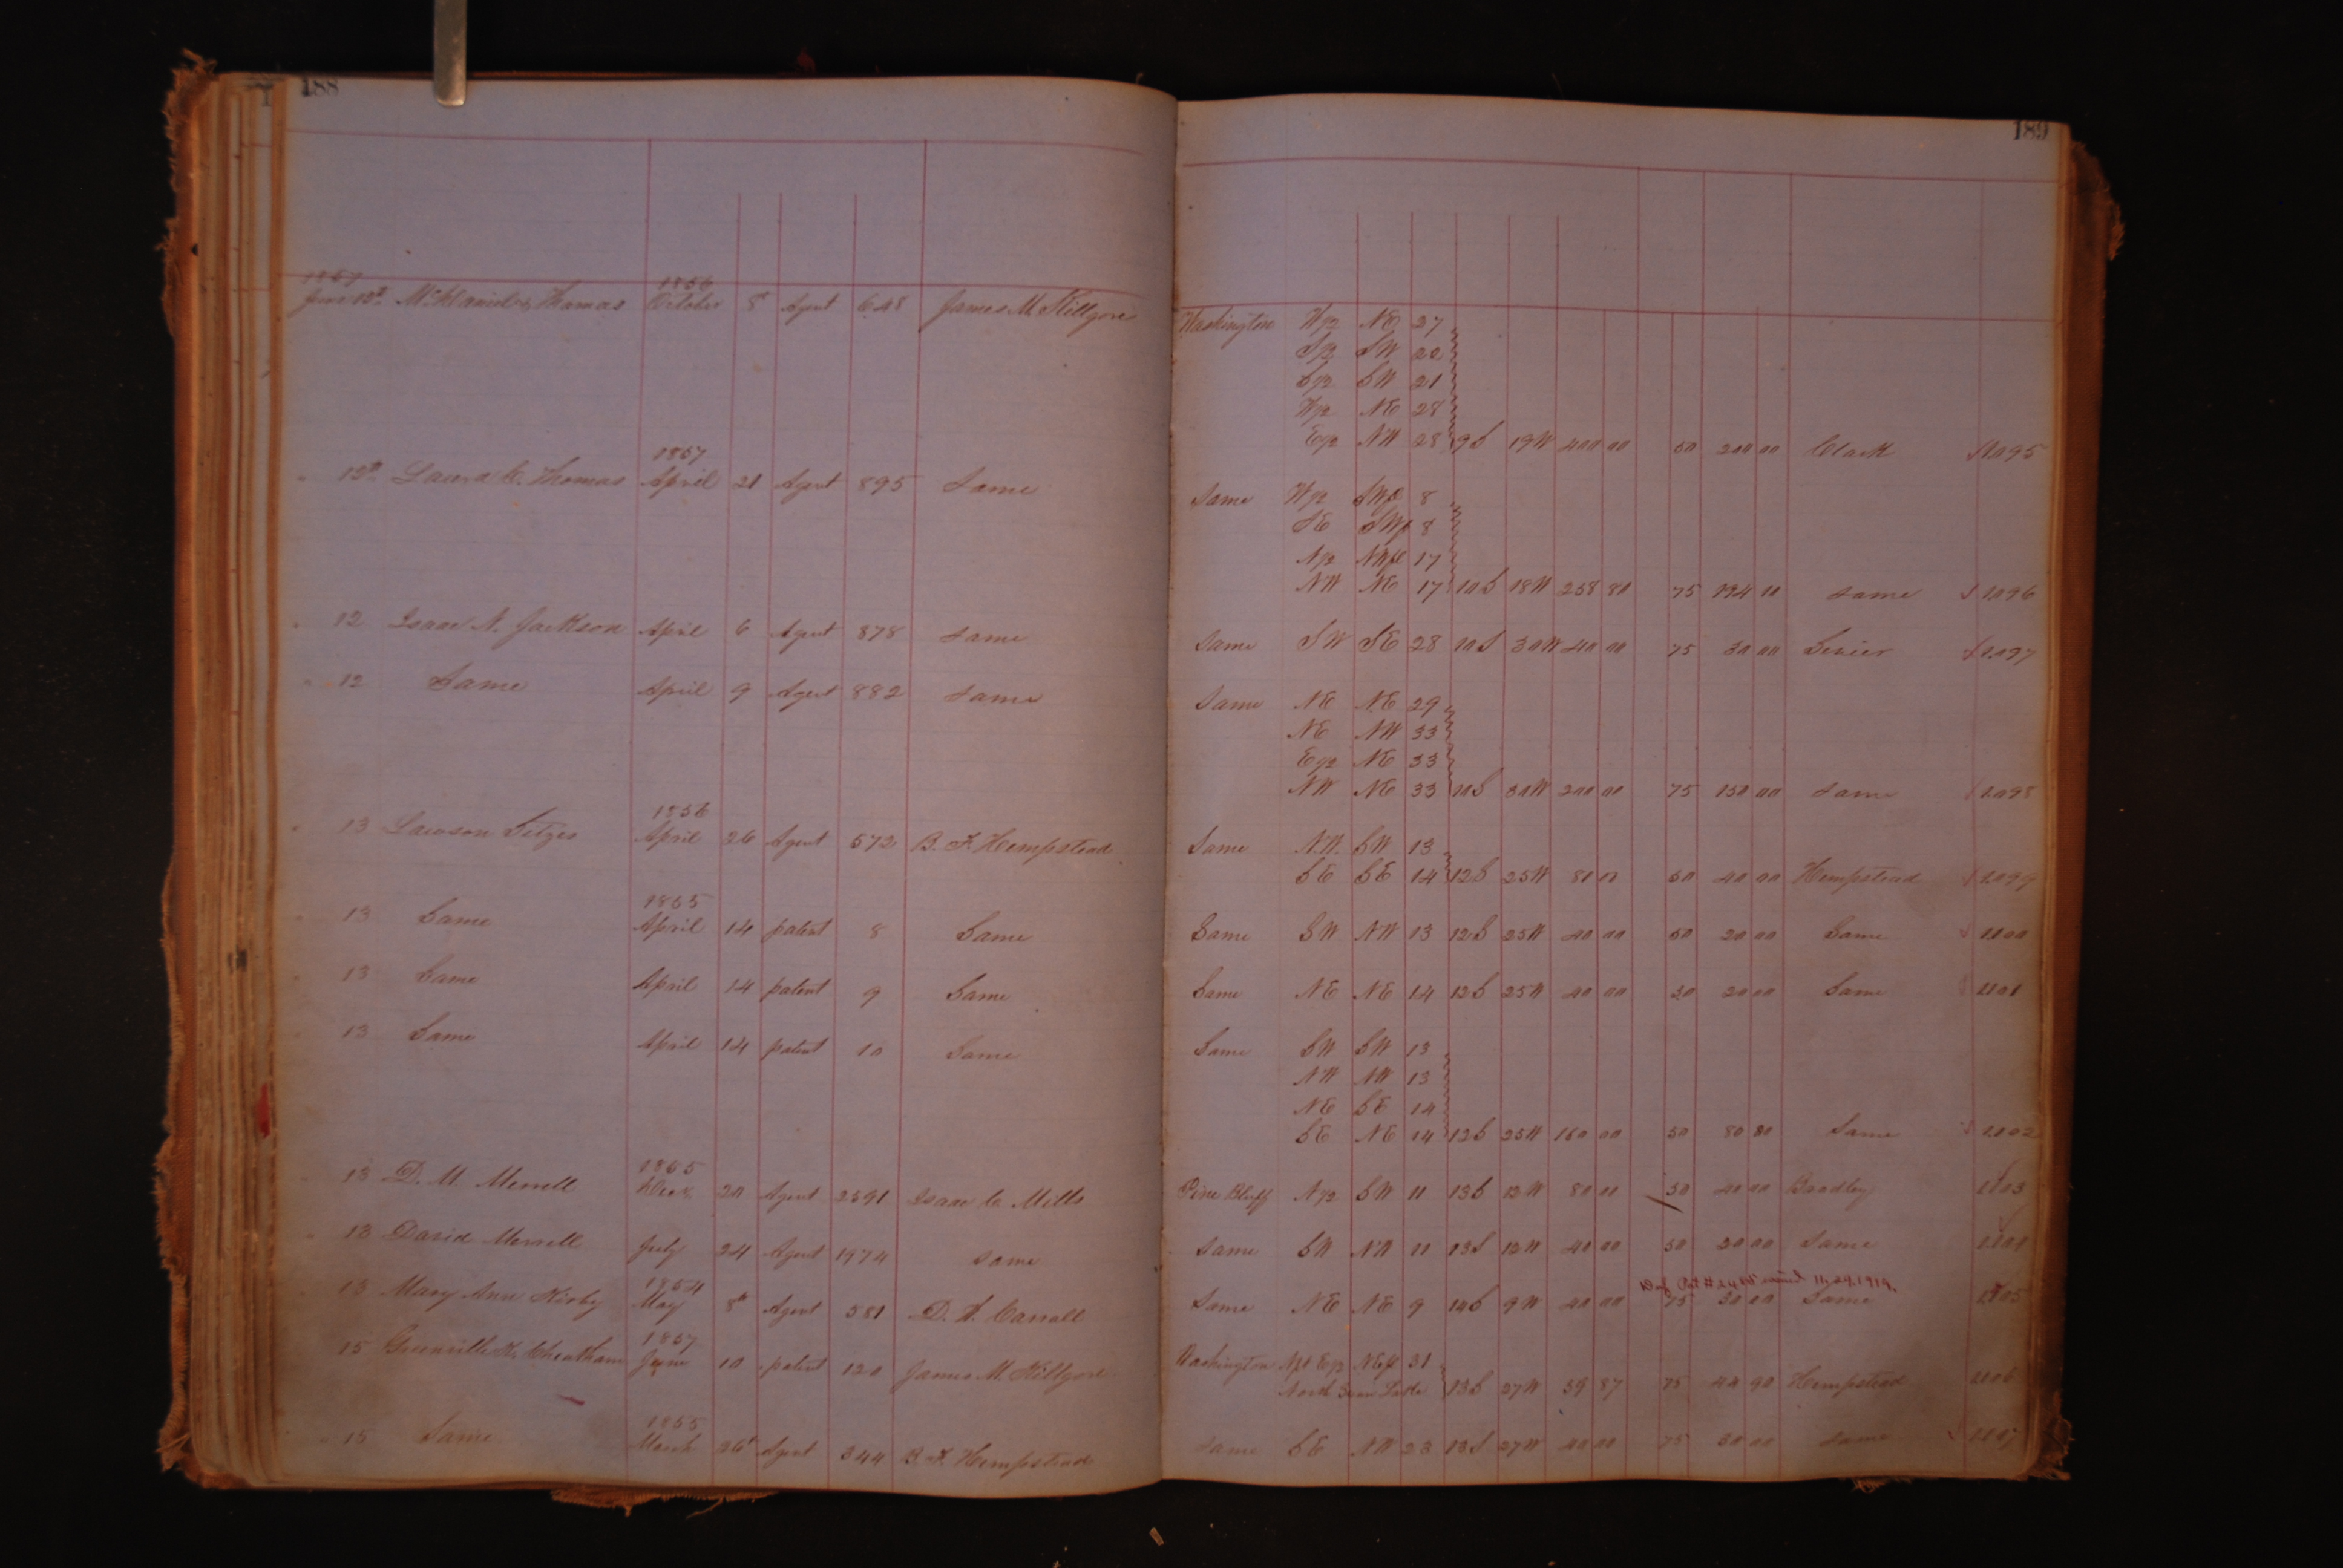 188
189
1857 1856
June 12th McDaniel & Thomas October 8th Agent 648 James M. Killgore Washington W/2 NE 27
S/2 SW 22
S/2 SW 21
W/2 NE 28
E/2 NW 28 9S 19W 400 00 50 200 00 Clark 1095
1857
" 12th Laura C. Thomas April 21 Agent 895 Same Same W/2 SW 8
SE SW 8
N/2 17
NW NE 17 10S 18W 258 80 75 194 11 Same 1096
" 12 Isaac N. Jackson April 6 Agent 878 Same Same SW SE 28 10S 30W 40 00 75 30 00 Sevier 1097
" 12 Same April 9 Agent 882 Same Same NE NE 29
NE NW 33
E/2 NE 33
NW NE 33 10S 30W 200 00 75 150 00 Same 1098
1856
" 13 Lawson April 26 Agent 572 B. F. Hempstead Same NW SW 13
SE SE 14 12S 25W 80 00 50 40 00 Hempstead 1099
1855
" 13 Same April 14 patent 8 Same Same SW NW 13 12S 25W 40 00 50 20 00 Same 1100
" 13 Same April 14 patent 9 Same Same NE NE 14 12S 25W 40 00 50 20 00 Same 1101
" 13 Same April 14 patent 10 Same Same SW SW 13
NW NW 13
NE SE 14
SE NE 14 12S 25W 160 00 50 80 80 Same 1102
1855
" 13 D. M. Merrell Decr. 20 Agent 2591 Isaac C. Mills Pine Bluff N/2 SW 11 13S 12W 80 00 50 40 00 Bradley 1103
" 13 David Merrell July 24 Agent 1974 Same Same SW NW 11 13S 12W 40 00 50 20 00 Same 1104
1854
" 13 Mary Ann Kirby May 8th Agent 581 D. W. Carroll Same NE NE 9 14S 9W 40 00 75 30 00 Same 1105
1857
15 Greenville K. Cheatham June 10 patent 120 James M. Killgore Washington Npt E/2 31
North 13S 27W 59 87 75 44 90 Hempstead 1106
1855
" 15 Same March 26 Agent 344 B. F. Hempstead Same SE NW 23 13S 27W 40 00 75 30 00 Same 1107